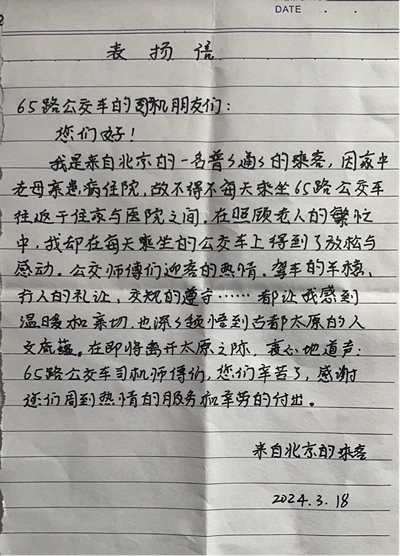 DATE
表扬信
65路公交车的司机朋友们：
您们好！
我是来自北京的一名普々通々的乘客，因家中
老母亲患病住院，故不得不每天乘坐65路公交车
往返于住家与医院之间。在照顾老人的繁忙
中，我却在每天乘坐的公交车上得到了放松与
感动。公交师傅们迎客的热情，驾车的平稳，
行人的礼让，交规的遵守……都让我感到
温暖和亲切，也深々领悟到古都太原的人
文底蕴。在即将离开太原之际，衷心地道声：
65路公交车司机师傅们，您们辛苦了，感谢
您们周到热情的服务和辛劳的付出。
来自北京的乘客
2024.3.18